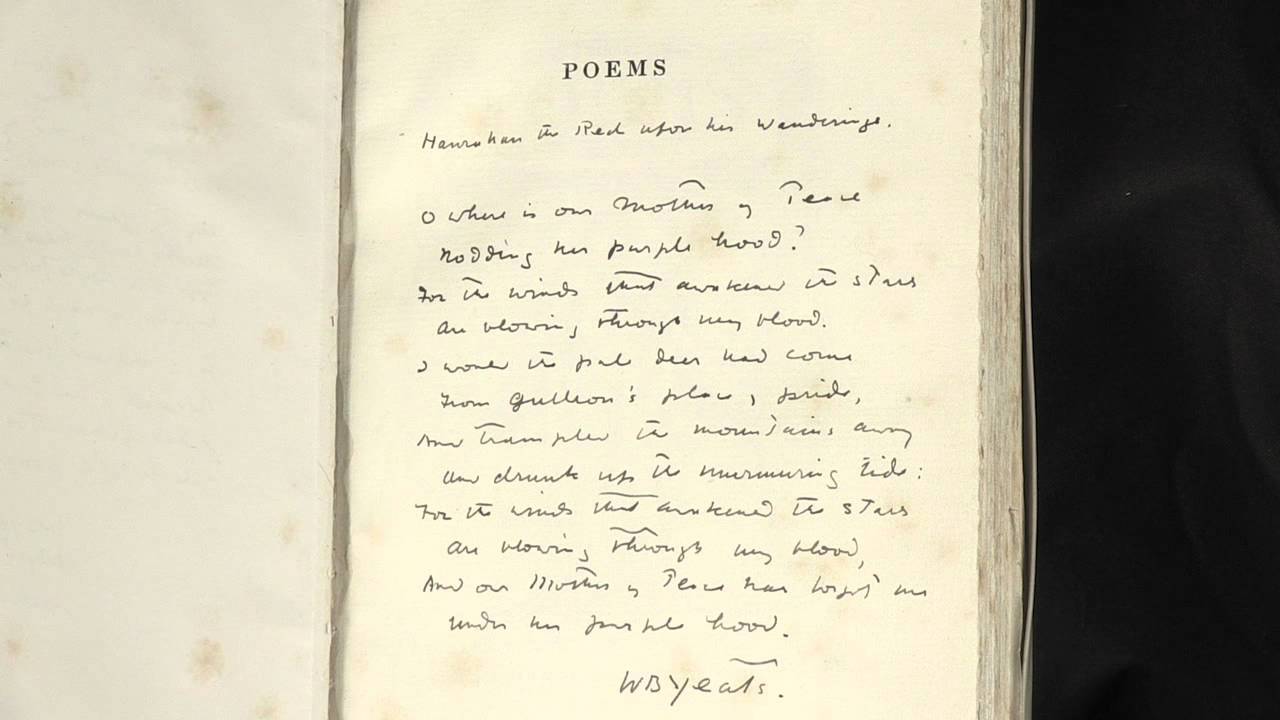 POEMS
Hanrahan the Red upon his Wanderings.
O where is our Mother of Peace
Nodding her purple hood?
For the winds that awakened the stars
Are blowing through my blood.
I would the pale deer had come
From Gulleon's place of pride,
And trampled the mountains away
And drunk up the murmuring tide:
For the winds that awakened the stars
Are blowing through my blood,
And our Mother of Peace has forgot me
Under her purple hood.
WB Yeats.